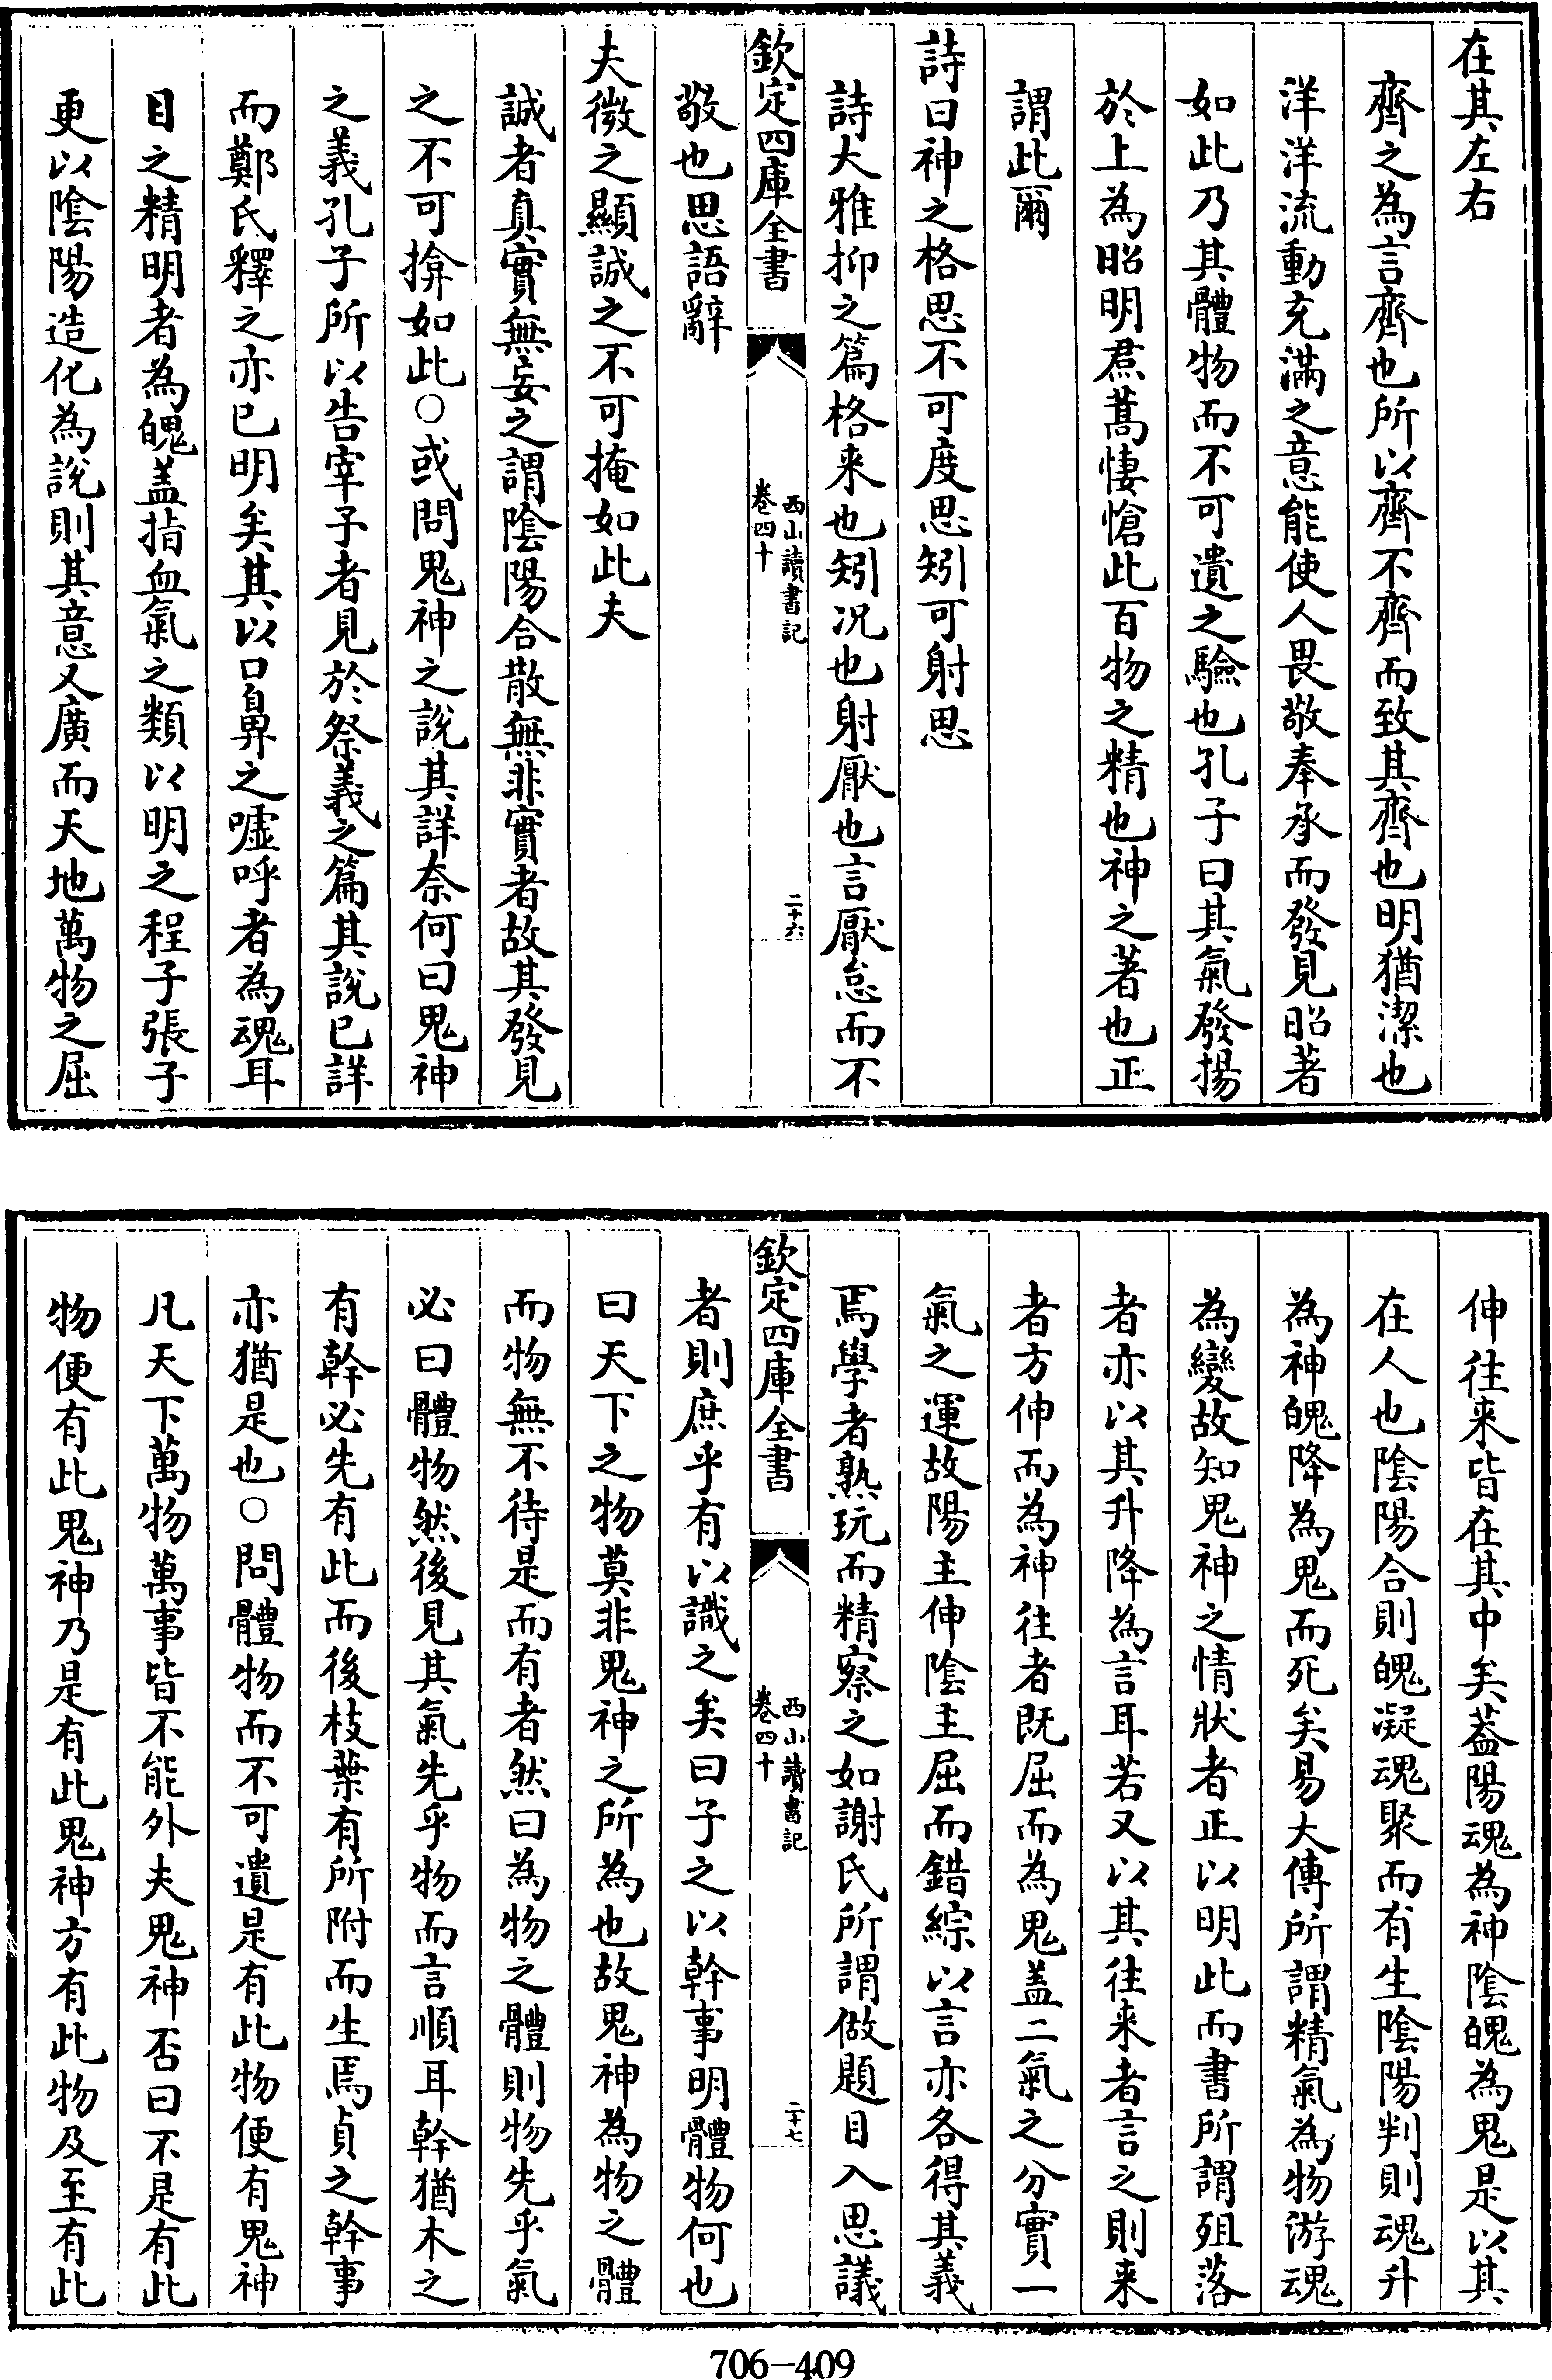 在其左右
齊之為言齊也所以齊不齊而致其齊也明猶潔也
洋洋流動充滿之意能使人畏敬奉承而發見昭著
如此乃其體物而不可遺之驗也孔子曰其氣發揚
於上為昭明焄蒿悽愴此百物之精也神之著也正
謂此爾
詩曰神之格思不可度思矧可射思
詩大雅抑之篇格来也矧况也射厭也言厭怠而不
欽定四庫全書
西山讀書記
卷四十
二十六
敬也思語辭
夫微之顯誠之不可掩如此夫
誠者真實無妄之謂陰陽合散無非實者故其發見
之不可揜如此○或問鬼神之說其詳奈何曰鬼神
之義孔子所以告宰子者見於祭義之篇其說已詳
而鄭氏釋之亦已明矣其以口鼻之嘘呼者為魂耳
目之精明者為魄盖指血氣之類以明之程子張子
更以陰陽造化為說則其意又廣而天地萬物之屈
伸往来皆在其中矣葢陽魂為神陰魄為鬼是以其
在人也陰陽合則魄凝魂聚而有生陰陽判則魂升
為神魄降為鬼而死矣易大傳所謂精氣為物游魂
為變故知鬼神之情狀者正以明此而書所謂殂落
者亦以其升降為言耳若又以其往来者言之則来
者方伸而為神往者既屈而為鬼盖二氣之分實一
氣之運故陽主伸陰主屈而錯綜以言亦各得其義
焉學者熟玩而精察之如謝氏所謂做題目入思議
欽定四庫全書
西山讀書記
卷四十
二十七
者則庶乎有以識之矣曰子之以幹事明體物何也
曰天下之物莫非鬼神之所為也故鬼神為物之體
而物無不待是而有者然曰為物之體則物先乎氣
必曰體物然後見其氣先乎物而言順耳幹猶木之
有幹必先有此而後枝葉有所附而生焉貞之幹事
亦猶是也○問體物而不可遺是有此物便有鬼神
凡天下萬物萬事皆不能外夫鬼神否曰不是有此
物便有此鬼神乃是有此鬼神方有此物及至有此
706-409